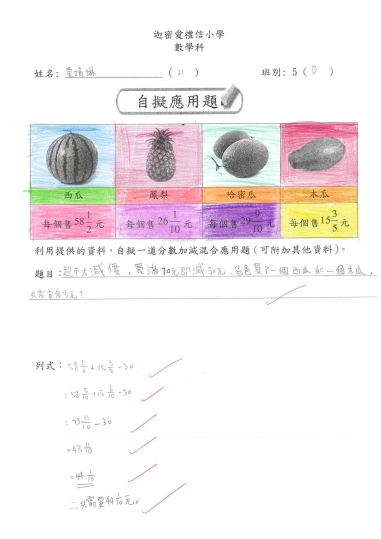 迦密愛禮信小學
數學科
姓名: （ 21 ） 班別: 5 ( D )
自擬應用題
西瓜 鳳梨 哈密瓜 木瓜
每個售58 1/2 元 每個售26 1/10 元 每個售29 9/10 元 每個售15 3/5 元
利用提供的資料，自擬一道分數加減混合應用題（可附加其他資料）。
題目: 超市大減價，買滿70元即減30元，爸爸買了一個西瓜和一個木瓜，
共需要多少元？
列式: 58 1/2 + 15 3/5 - 30
= 58 5/10 + 15 6/10 - 30
= 73 11/10 - 30
= 43 11/10
= 44 1/10
∴共需要44 1/10元。